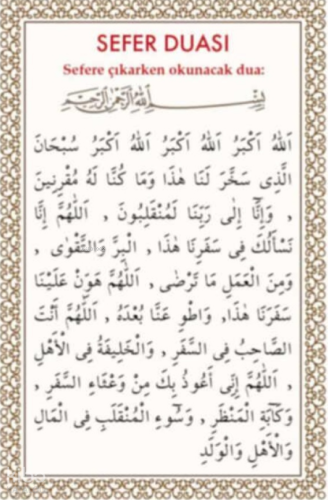 SEFER DUASI
Sefere çıkarken okunacak dua:
بِسْمِ اللّٰهِ الرَّحْمٰنِ الرَّحِيمِ
اَللهُ اَكْبَرُ اَللهُ اَكْبَرُ اَللهُ اَكْبَرُ سُبْحَانَ
الَّذِى سَخَّرَ لَنَا هٰذَا وَمَا كُنَّا لَهُ مُقْرِنِينَ
, وَإِنَّٓا إِلٰى رَبِّنَا لَمُنْقَلِبُونَ , اَللّٰهُمَّ إِنَّا
نَسْأَلُكَ فِى سَفَرِنَا هٰذَا , الْبِرَّ وَالتَّقْوٰى ,
وَمِنَ الْعَمَلِ مَا تَرْضٰى , اَللّٰهُمَّ هَوِّنْ عَلَيْنَا
سَفَرَنَا هٰذَا, وَاطْوِ عَنَّا بُعْدَهُ , اَللّٰهُمَّ أَنْتَ
الصَّاحِبُ فِى السَّفَرِ , وَالْخَلِيفَةُ فِى الْأَهْلِ
, اَللّٰهُمَّ إِنِّى أَعُوذُ بِكَ مِنْ وَعْثَاءِ السَّفَرِ ,
وَكَآبَةِ الْمَنْظَرِ , وَسُٓوءِ الْمُنْقَلَبِ فِى الْمَالِ
وَالْأَهْلِ وَالْوَلَدِ